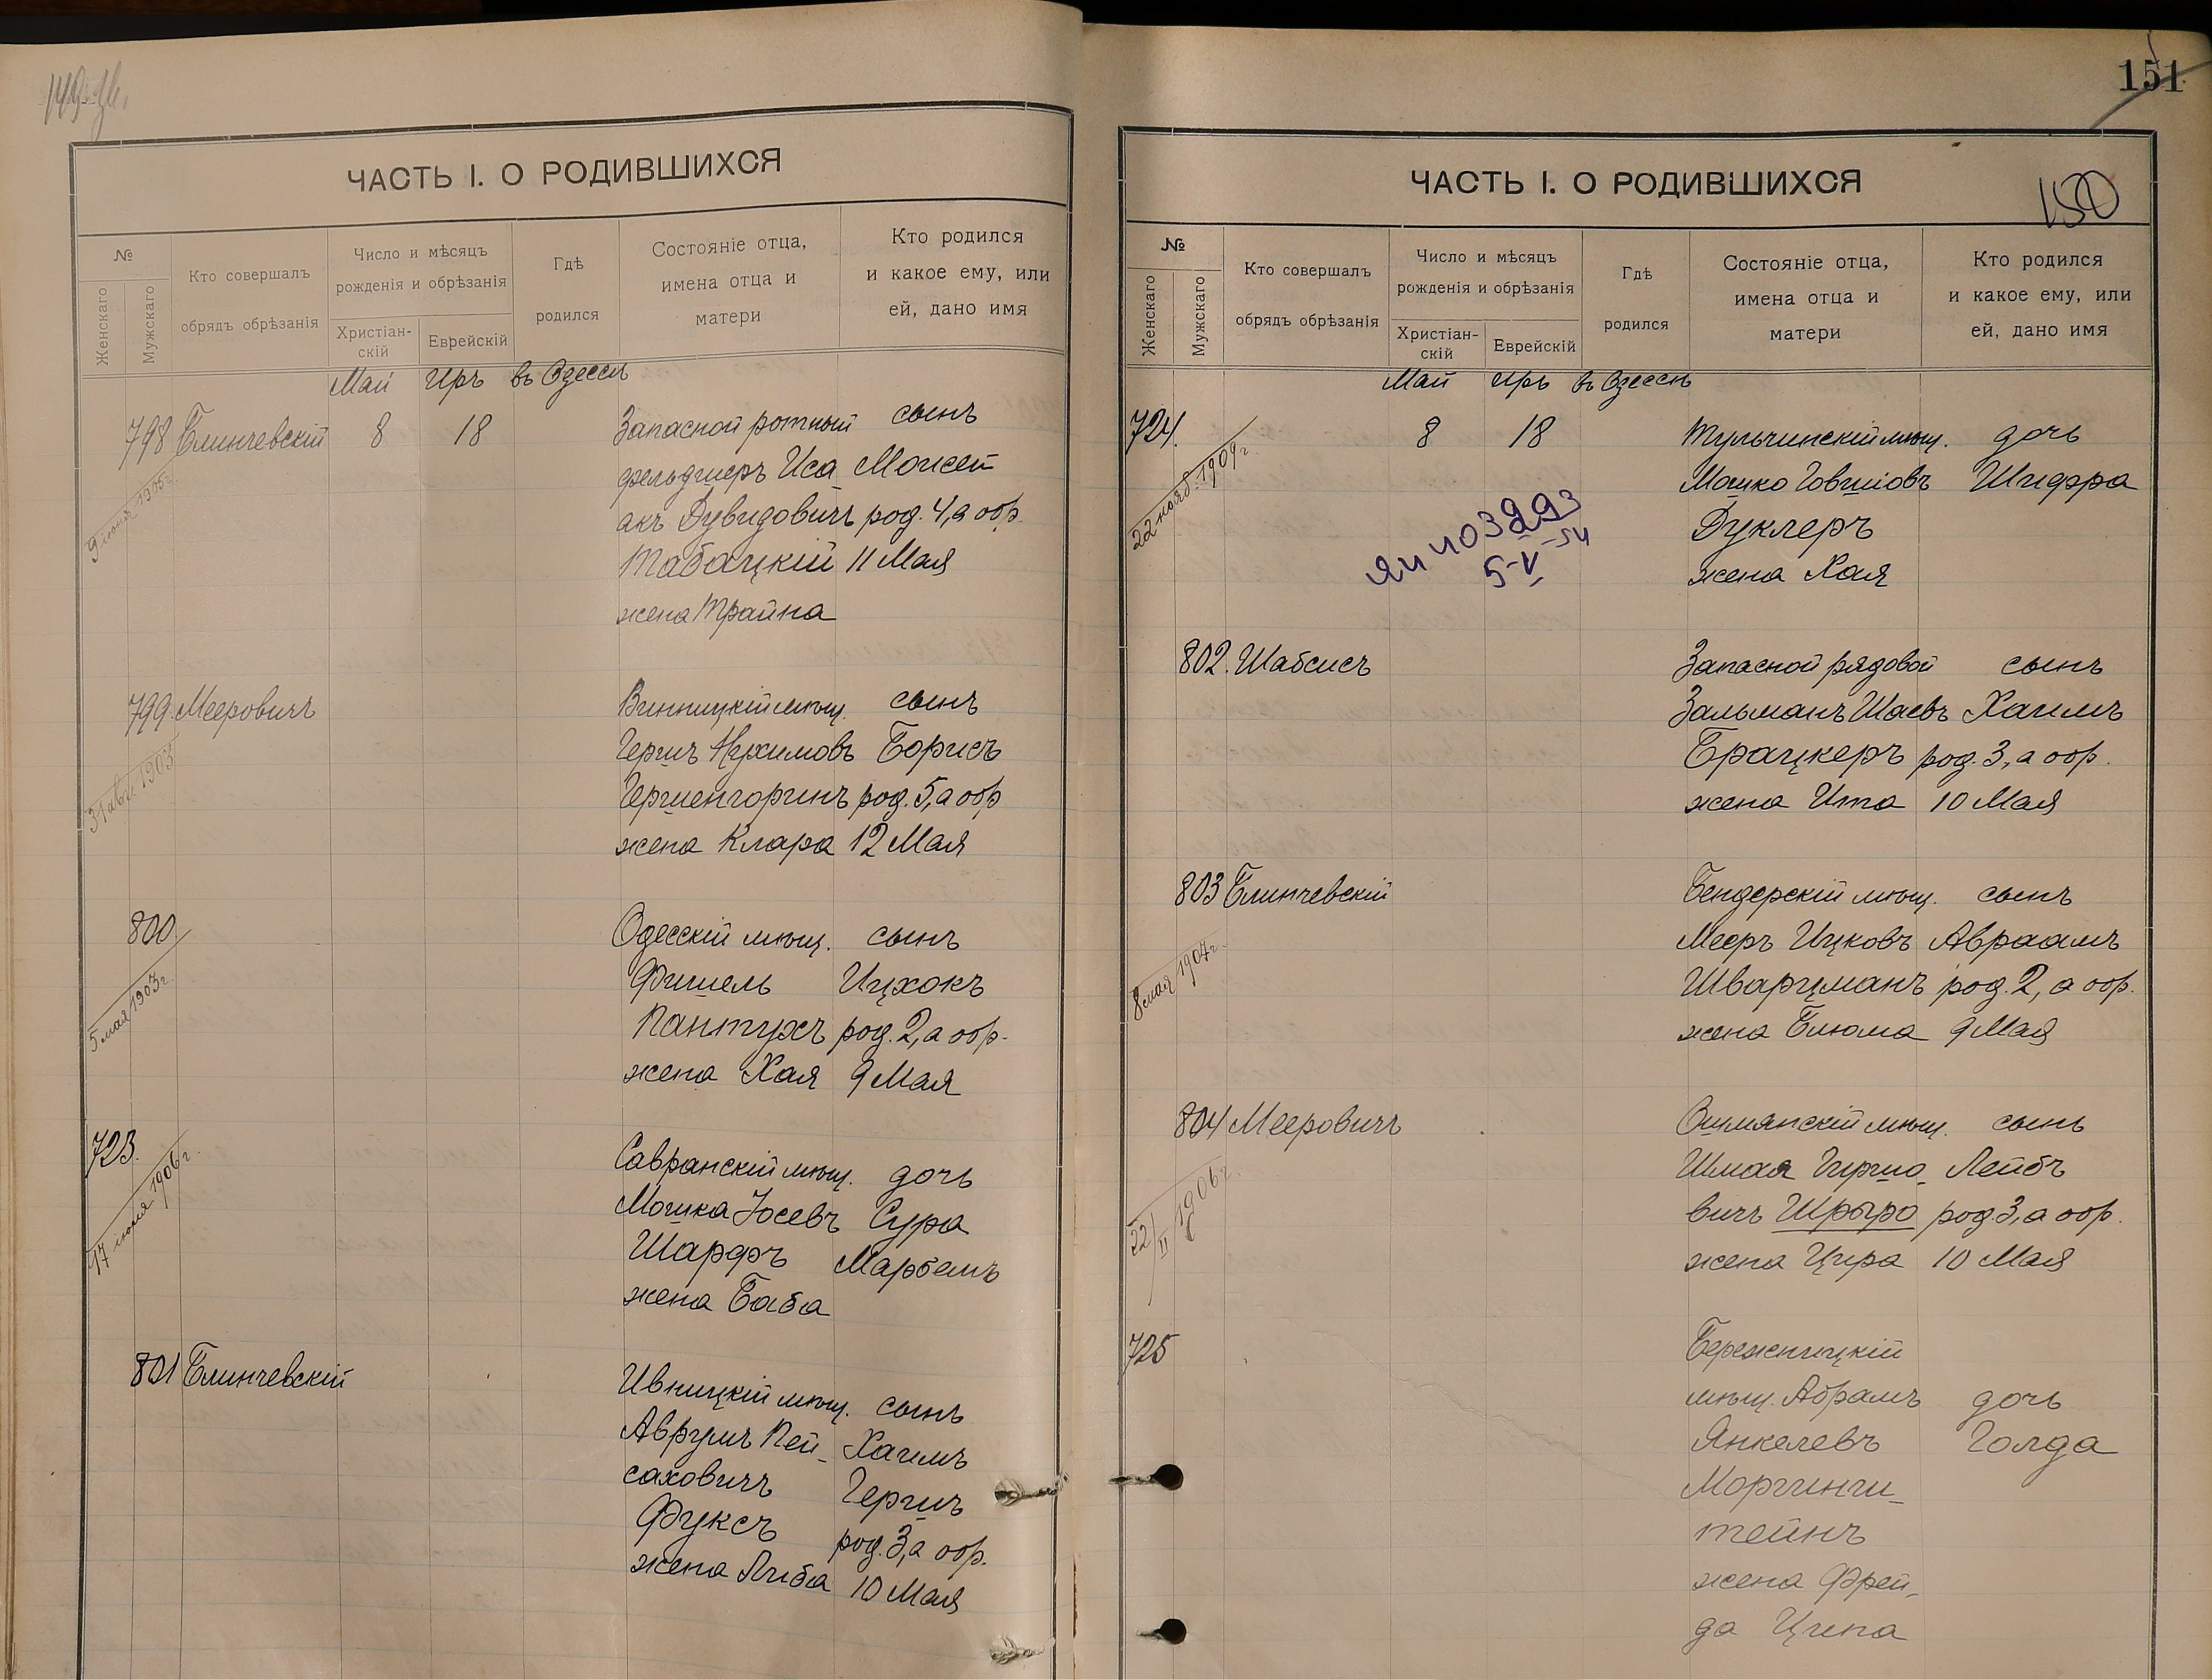 ЧАСТЬ I. О РОДИВШИХСЯ
№
Женскаго
Мужскаго
Кто совершалъ
обрядъ обрѣзанія
Число и мѣсяцъ
рожденія и обрѣзанія
Христіан-
скій
Еврейскій
Гдѣ
родился
Состояніе отца,
имена отца и
матери
Кто родился
и какое ему, или
ей, дано имя
Май Иръ въ Одессѣ
798 Блинчевскій 8 18 Запасной ротный сынъ
фельдшеръ Иса Моисей
акъ Дувидовичъ род. 4, а обр.
Табацкій 11 Мая
жена Трайна
9 1905 г.
799. Мееровичъ Винницкій мѣщ. сынъ
Гершъ Нухимовъ Борисъ
Гершенгоринъ род. 5, а обр
жена Клара 12 Мая
31 авг. 1903
800 Одесскій мѣщ. сынъ
Фишель Ицхокъ
Пантухъ род. 2, а обр.
жена Хая 9 Мая
5 мая 1903 г.
723. Савранскій мѣщ. дочь
Мошка Іосевъ Сура
Шарфъ Марбемъ
жена Баба
17 июня 1906 г.
801 Блинчевскій Ивницкій мѣщ. сынъ
Аврумъ Пей- Хаимъ
саховичъ Гершъ
Фуксъ род. 3, а обр.
жена Либа 10 Мая
151
ЧАСТЬ I. О РОДИВШИХСЯ
150
№
Женскаго
Мужскаго
Кто совершалъ
обрядъ обрѣзанія
Число и мѣсяцъ
рожденія и обрѣзанія
Христіан-
скій
Еврейскій
Гдѣ
родился
Состояніе отца,
имена отца и
матери
Кто родился
и какое ему, или
ей, дано имя
Май Иръ въ Одессѣ
724. 8 18 Тульчинскій мѣщ. дочь
Мошко Говшіовъ Шифра
Дуклеръ
жена Хая
22 нояб. 1909 г.
5-V-54
802. Шабсисъ Запасной рядовой сынъ
Зальманъ Шаевъ Хаимъ
Брацкеръ род. 3, а обр.
жена Ита 10 Мая
803 Блинчевскій Бендерскій мѣщ. сынъ
Мееръ Ицковъ Авраамъ
Шварцманъ род. 2, а обр.
жена Блюма 9 Мая
8 мая 1904 г.
804 Мееровичъ Ошмянскій мѣщ. сынъ
Шмая Гиршо- Лейбъ
вичъ Шрыро род. 3, а обр.
жена Цира 10 Мая
22/II 1906 г.
725 Бережницкій
мѣщ. Абрамъ дочь
Янкелевъ Голда
тейнъ
жена Фрей-
да Ципа